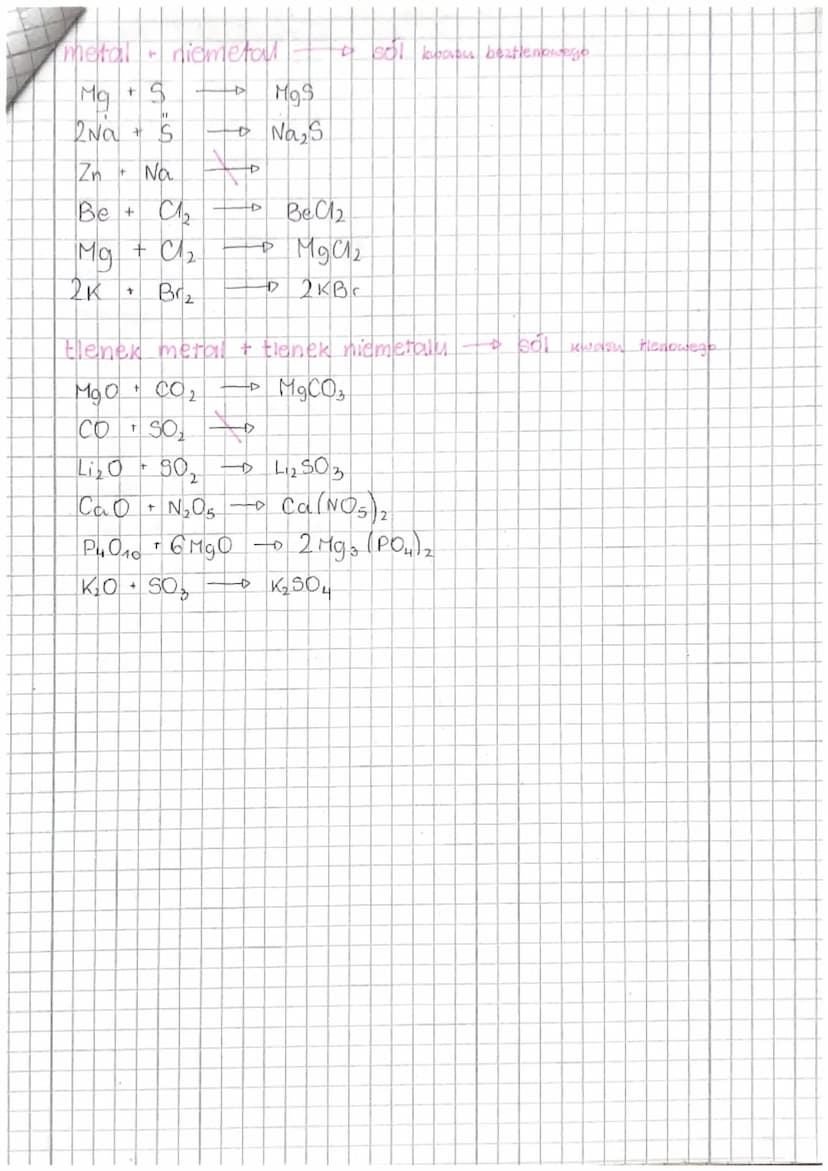 metal + niemetal → sól kwasu beztlenowego
Mg + S → MgS
2Na + S → Na₂S
Zn + Na ↛
Be + Cl₂ → BeCl₂
Mg + Cl₂ → MgCl₂
2K + Br₂ → 2KBr
tlenek metal + tlenek niemetalu → sól kwasu tlenowego
MgO + CO₂ → MgCO₃
CO + SO₂ ↛
Li₂O + SO₂ → Li₂SO₃
CaO + N₂O₅ → Ca(NO₅)₂
P₄O₁₀ + 6MgO → 2Mg₃(PO₄)₂
K₂O + SO₃ → K₂SO₄